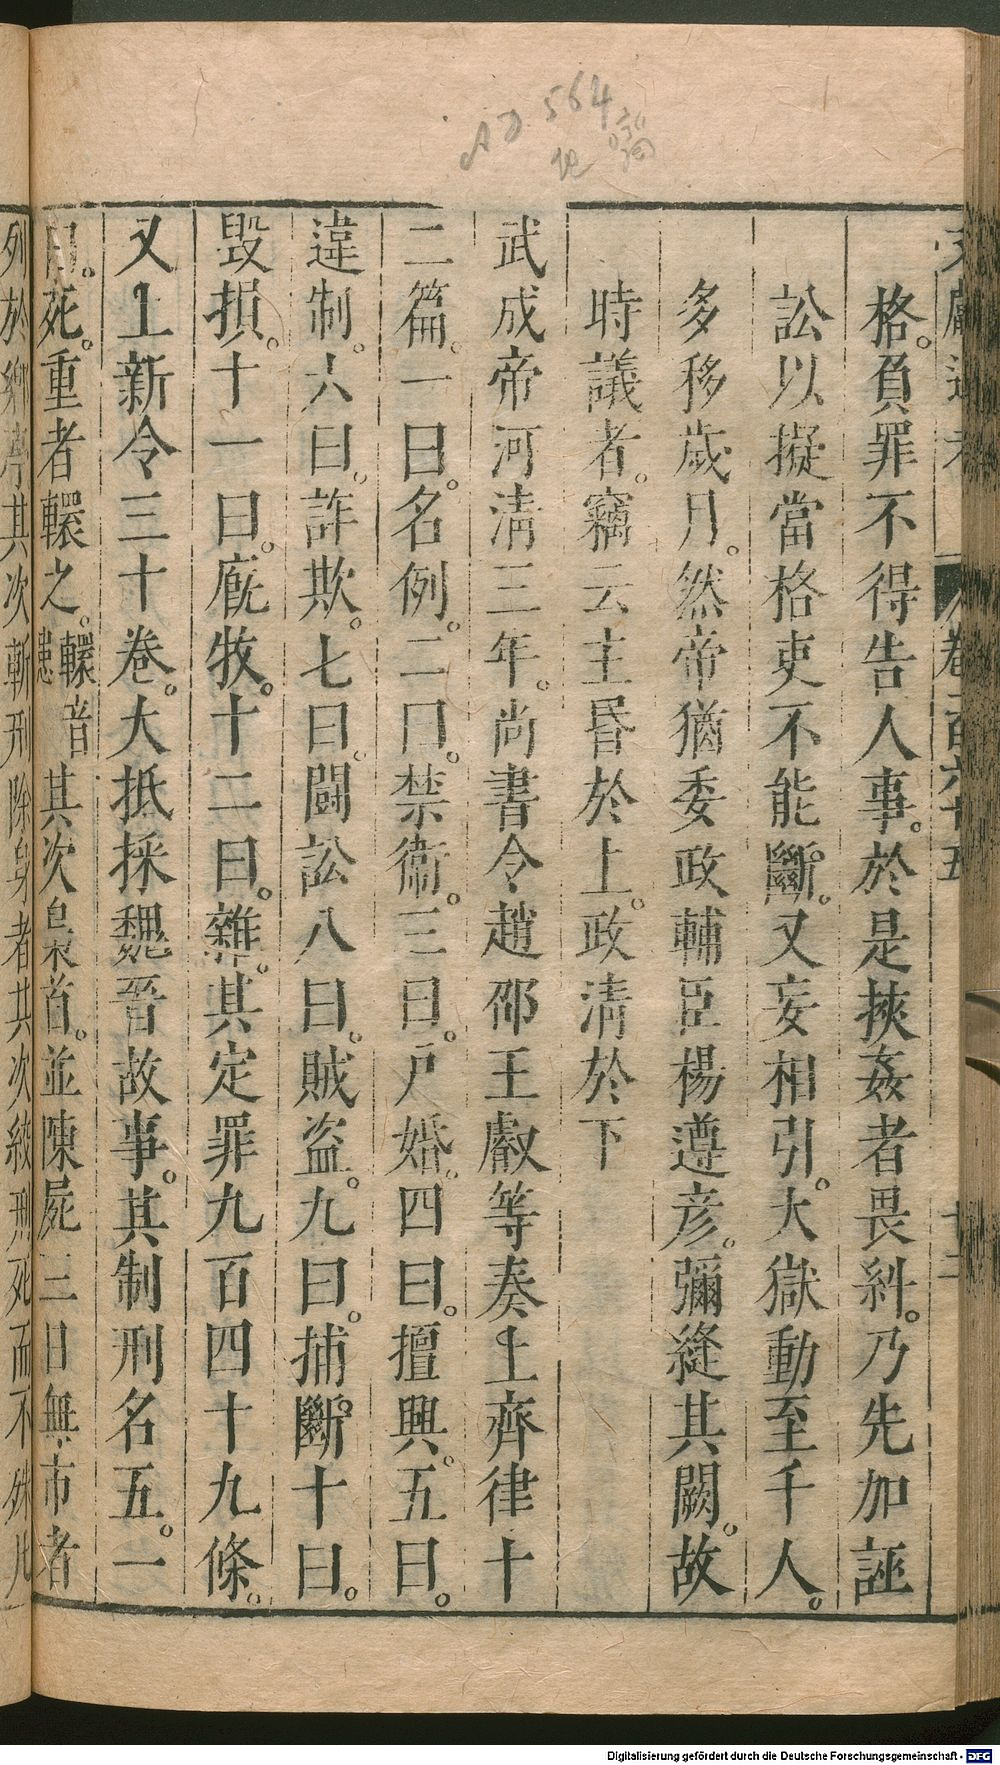 AD 564
格。負罪不得告人事。於是挾姦者畏糾。乃先加誣
訟以擬當格吏不能斷。又妄相引。大獄動至千人。
多移歲月。然帝猶委政輔臣楊遵彦。彌縫其闕。故
時議者。竊云主昬於上。政清於下
武成帝河清三年。尚書令趙郡王叡等奏上齊律十
二篇。一曰。名例。二曰。禁衞。三曰。戸婚。四曰。擅興。五曰。
違制。六曰。詐欺。七曰。鬬訟八曰。賊盜。九曰。捕斷十曰。
毀損。十一曰。廐牧。十二曰。雜。其定罪九百四十九條。
又上新令三十卷。大抵採魏晉故事。其制刑名五。一
曰。死。重者轘之。轘音患其次梟首。並陳屍三日無市者
列於鄉亭其次斬刑除身首其次絞刑死而不殊凡
卷一百六十五
十一
Digitalisierung gefördert durch die Deutsche Forschungsgemeinschaft - DFG